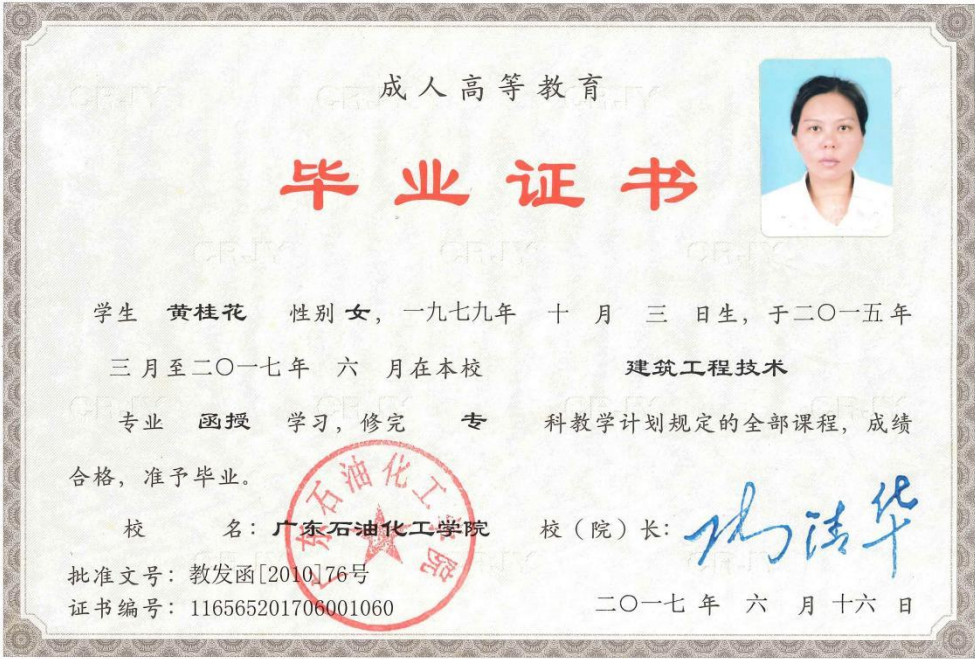 成人高等教育
毕业证书
学生 黄桂花 性别 女，一九七九年 十 月 三 日生，于二〇一五年
三 月至二〇一七年 六 月在本校 建筑工程技术
专业 函授 学习，修完 专 科教学计划规定的全部课程，成绩
合格，准予毕业。
校 名：广东石油化工学院 校（院）长：
广东石油化工学院
批准文号：教发函[2010]76号
证书编号：116565201706001060
二〇一七 年 六 月 十六 日